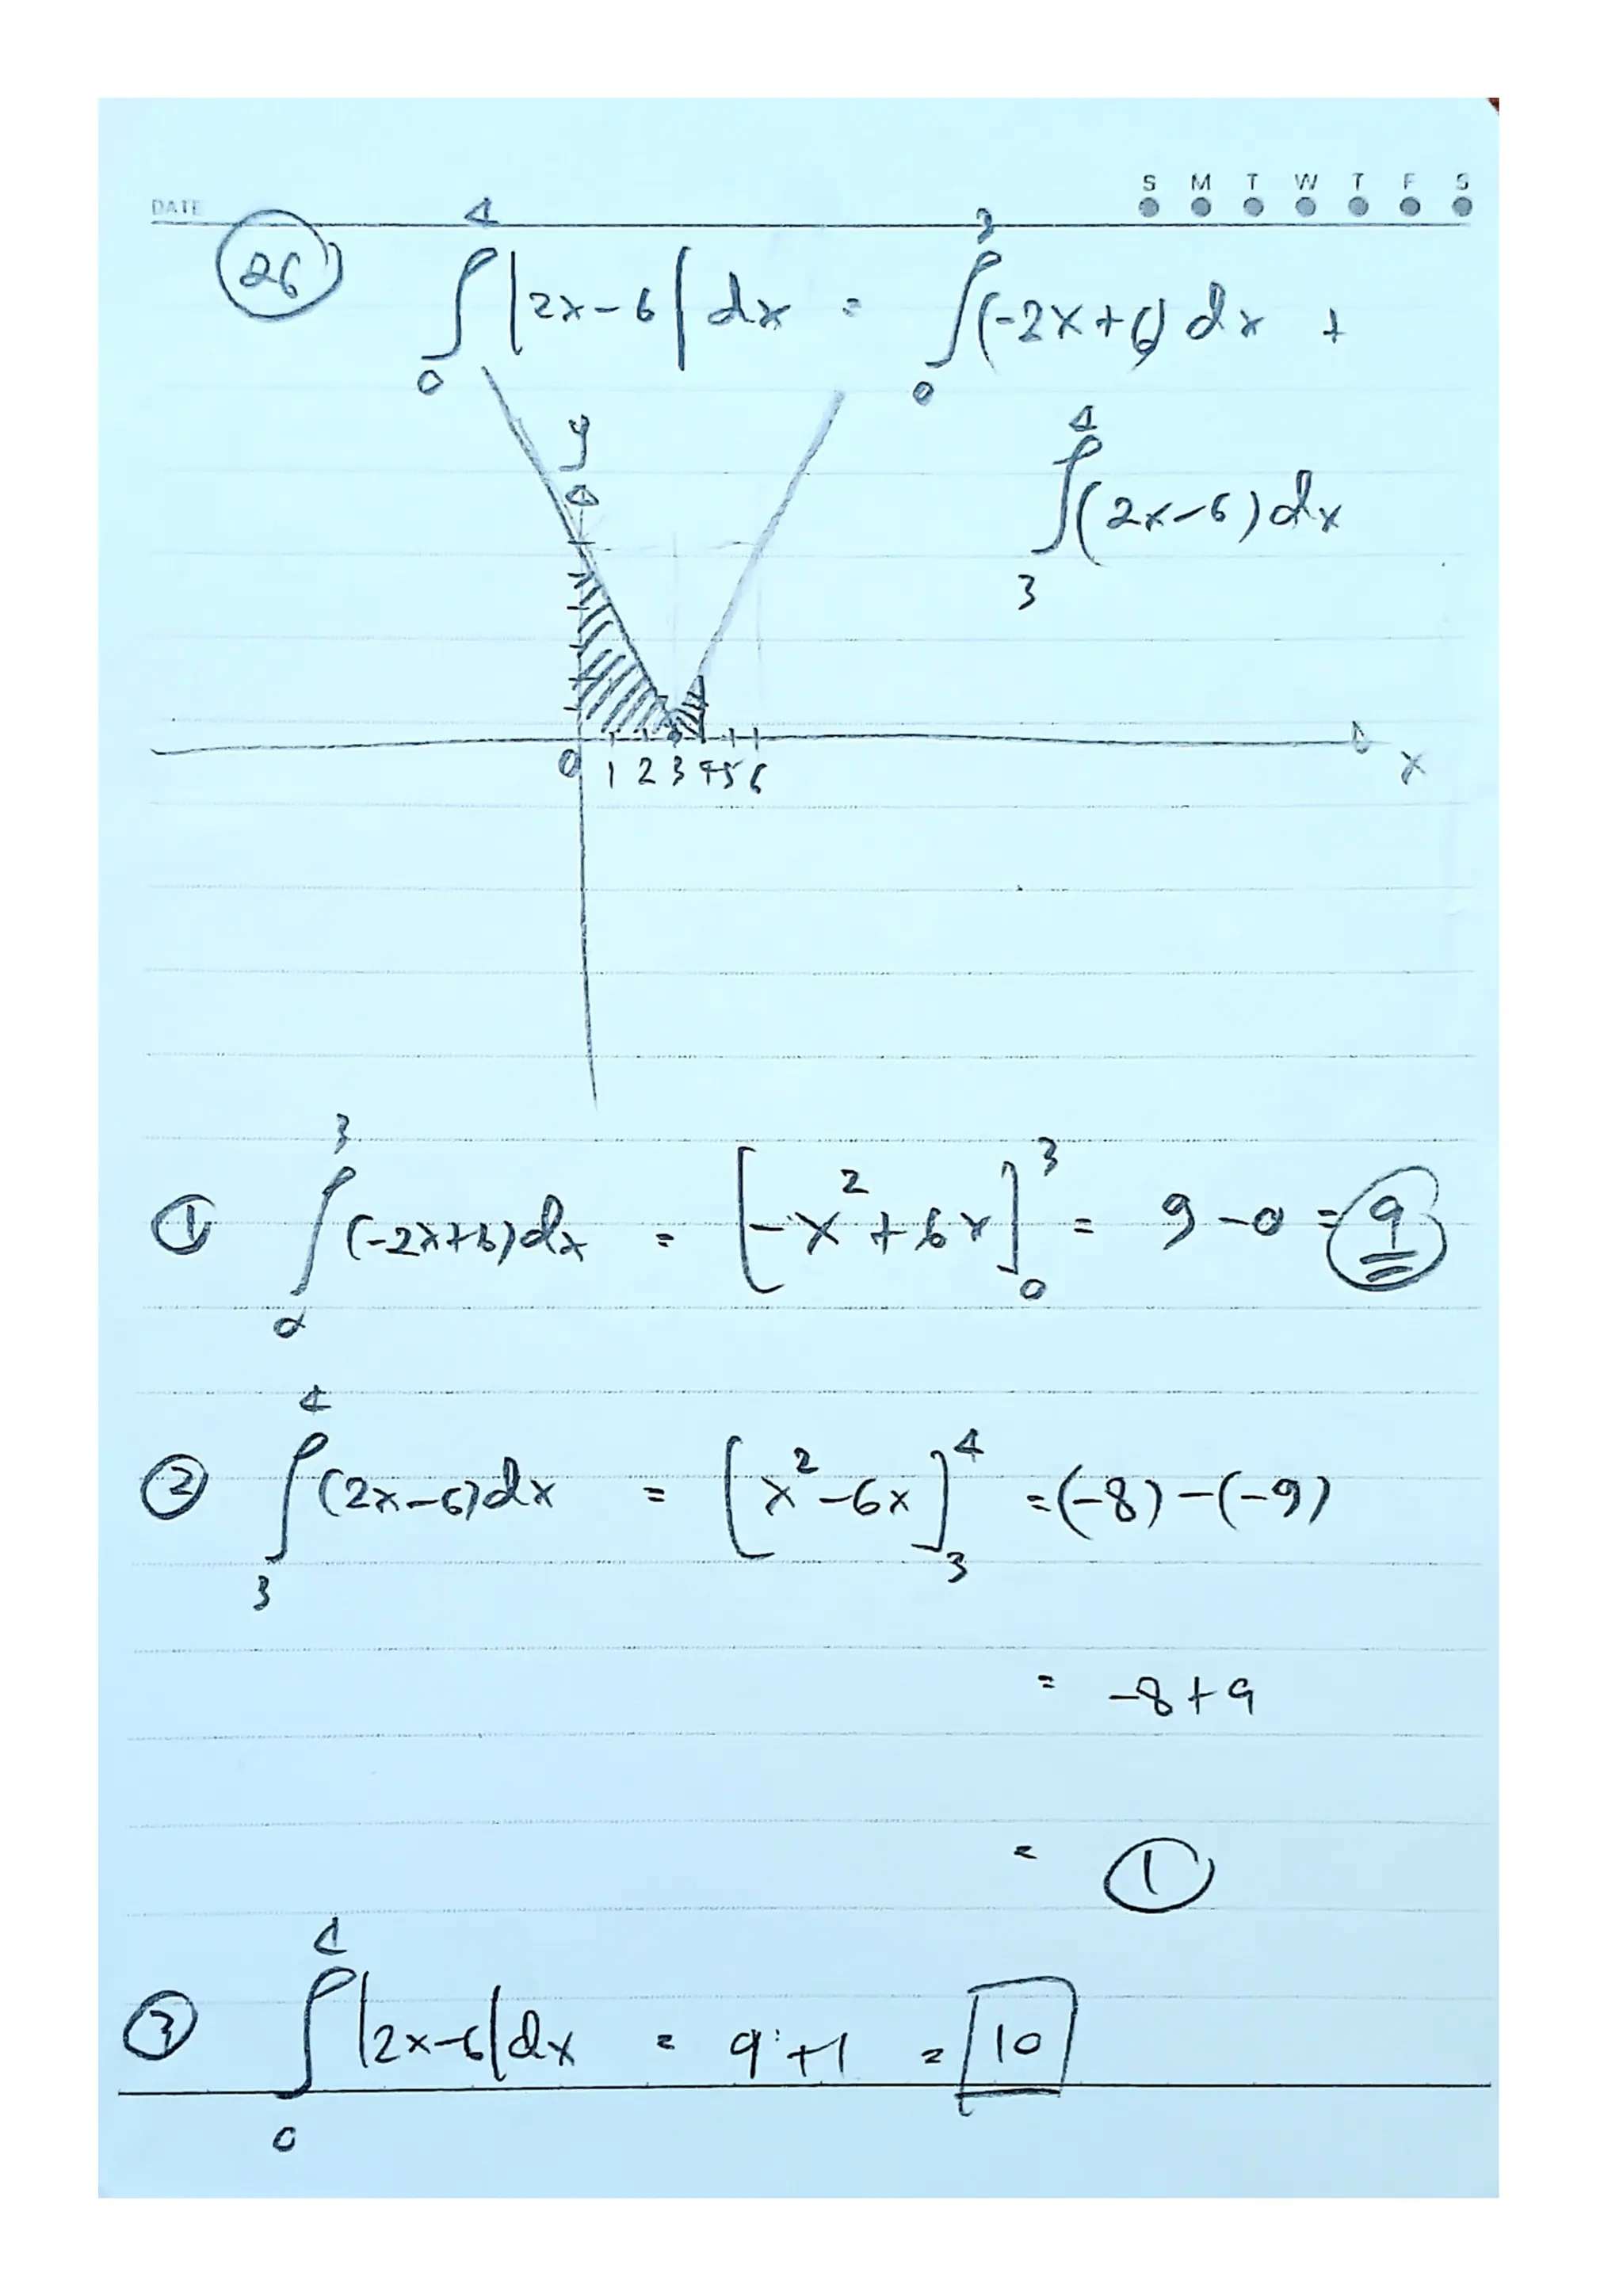 DATE S M T W T F S
26) ∫₀⁴ |2x-6| dx = ∫₀³ (-2x+6) dx +
∫₃⁴ (2x-6) dx
y
0 1 2 3 4 5 6 x
① ∫₀³ (-2x+6) dx = [-x²+6x]₀³ = 9-0 = 9
② ∫₃⁴ (2x-6) dx = [x²-6x]₃⁴ = (-8)-(-9)
= -8+9
= 1
③ ∫₀⁴ |2x-6| dx = 9+1 = 10